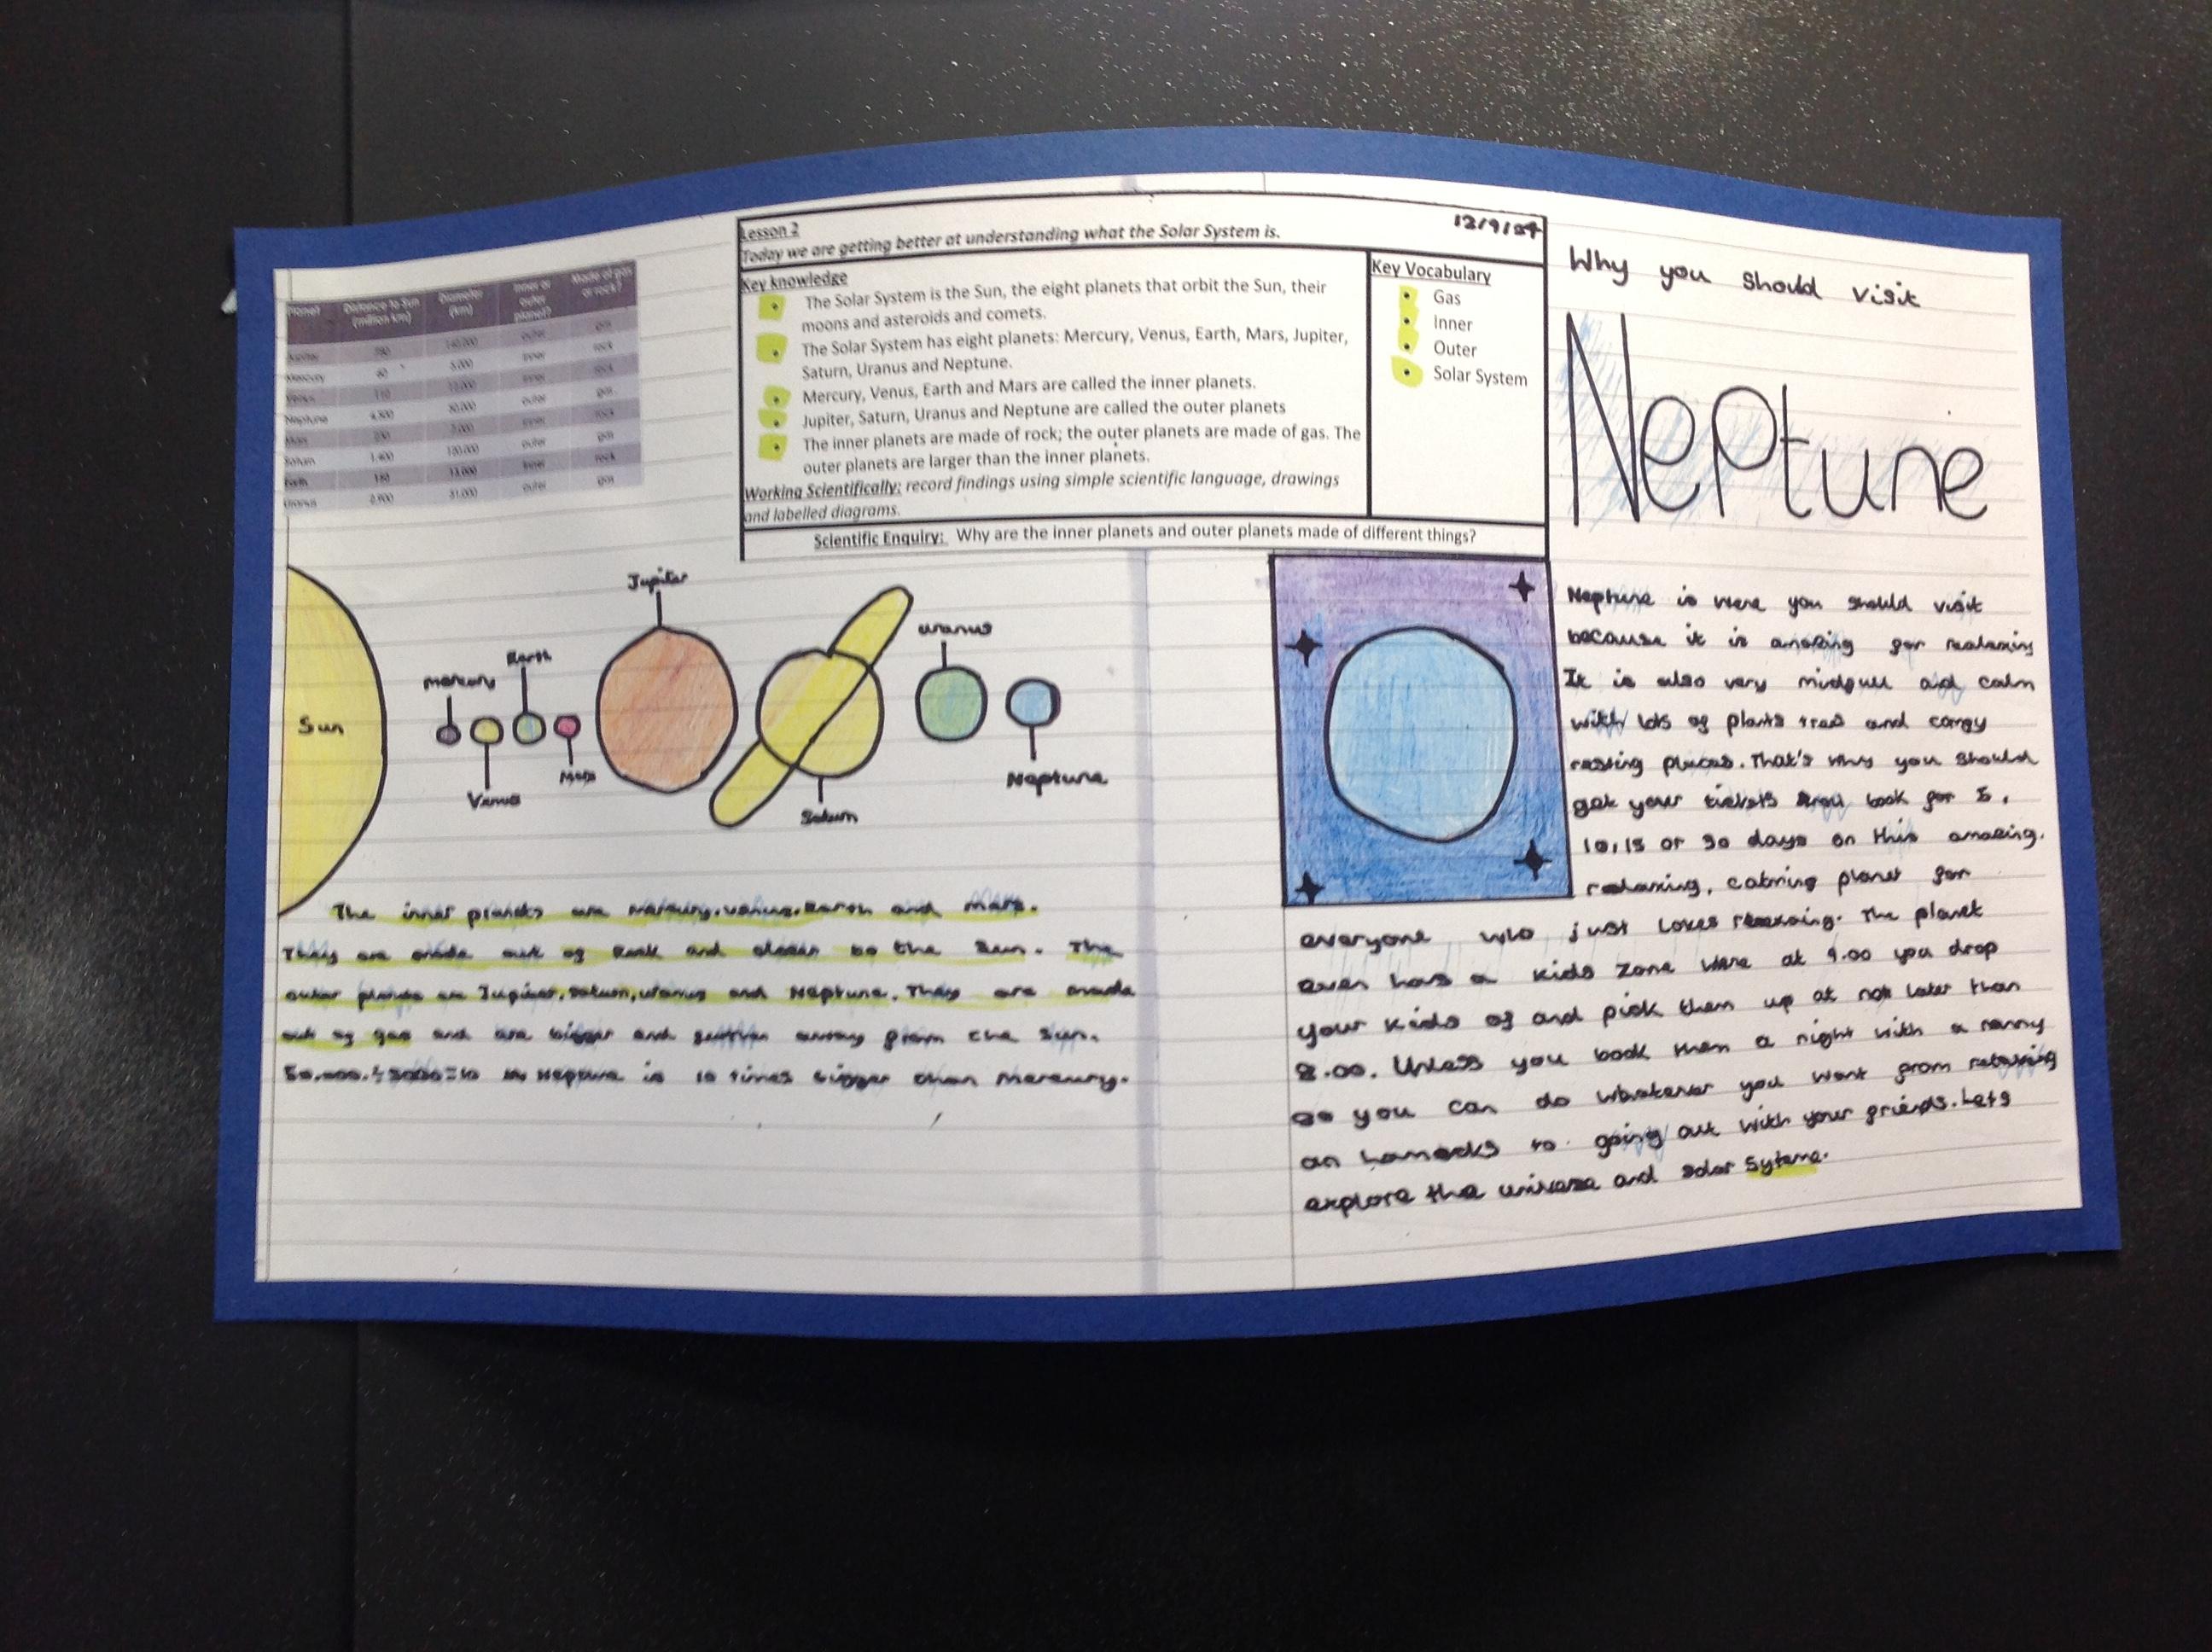 Planet Distance to Sun (million km) Diameter (km) Inner or outer planet? Made of gas or rock?
Jupiter 780 140,000 outer gas
Mercury 60 5,000 inner rock
Venus 110 12,000 inner rock
Neptune 4,500 50,000 outer gas
Mars 7,000 inner rock
Saturn 1,400 120,000 outer gas
Earth 150 13,000 inner rock
Uranus 2,900 51,000 outer gas
Lesson 2
12/9/24
Today we are getting better at understanding what the Solar System is.
Key knowledge
The Solar System is the Sun, the eight planets that orbit the Sun, their
moons and asteroids and comets.
The Solar System has eight planets: Mercury, Venus, Earth, Mars, Jupiter,
Saturn, Uranus and Neptune.
Mercury, Venus, Earth and Mars are called the inner planets.
Jupiter, Saturn, Uranus and Neptune are called the outer planets
The inner planets are made of rock; the outer planets are made of gas. The
outer planets are larger than the inner planets.
Working Scientifically: record findings using simple scientific language, drawings
and labelled diagrams.
Key Vocabulary
Gas
Inner
Outer
Solar System
Scientific Enquiry: Why are the inner planets and outer planets made of different things?
Sun
mercury
Venus
Earth
Mars
Jupiter
Saturn
uranus
Neptune
The inner planets are Mercury, Venus, Earth and Mars.
They are made out of Rock and closer to the Sun. The
outer planets are Jupiter, Saturn, uranus and Neptune. They are made
out of gas and are bigger and further away from the Sun.
50,000 ÷ 5000 = 10 Neptune is 10 times bigger than Mercury.
Why you should visit
Neptune
Neptune is were you should visit
because it is amazing for realaxing
It is also very midfull and calm
with lots of plants trees and comfy
resting places. That's why you should
get your tickets book for 5,
10, 15 or 30 days on this amazing.
relaxing, calming planet for
everyone who just loves The planet
even has a kids zone were at 9.00 you drop
your kids of and pick them up at not later than
8.00. Unless you book them a night with a nanny
so you can do whatever you want from relaxing
on hamocks to going out with your friends. Lets
explore the universe and solar Syteme.